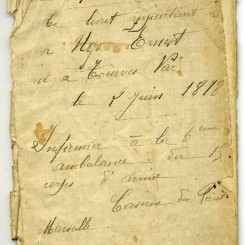 Ce livret appartient
a Ernest
né a Tourves Var
le Juin 1818
Infirmier à la 6eme
ambulance du 15
corps d'armée
Caserne du
Marseille